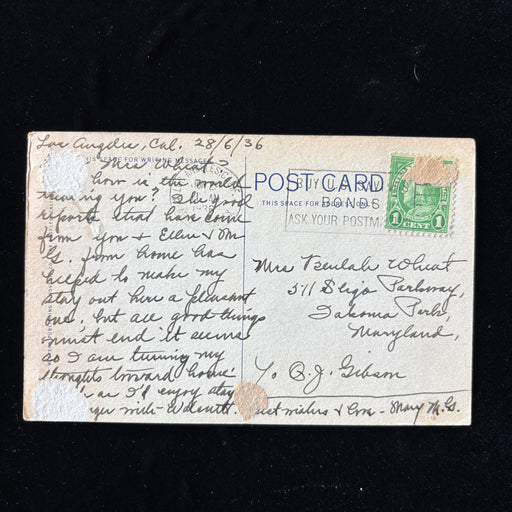 Los Angeles, Cal. 28/6/36
THIS SPACE FOR WRITING MESSAGES
Mrs Wheat?
how is the world
using you? The good
reports that have come
from you & Ellen & Mr
G. from home has
helped to make my
stay out here a pleasant
one, but all good things
must end it seems
so I am turning my
thoughts toward home
as I'll enjoy stay
with Walcutt. best wishes & love - Mary M. G.
POST CARD
THIS SPACE FOR
BUY U.S. SAV
BONDS
ASK YOUR POSTMA
1 CENT 1
Mrs Beulah Wheat
511 Sligo Parkway,
Takoma Park,
Maryland,
% B. J. Gibson